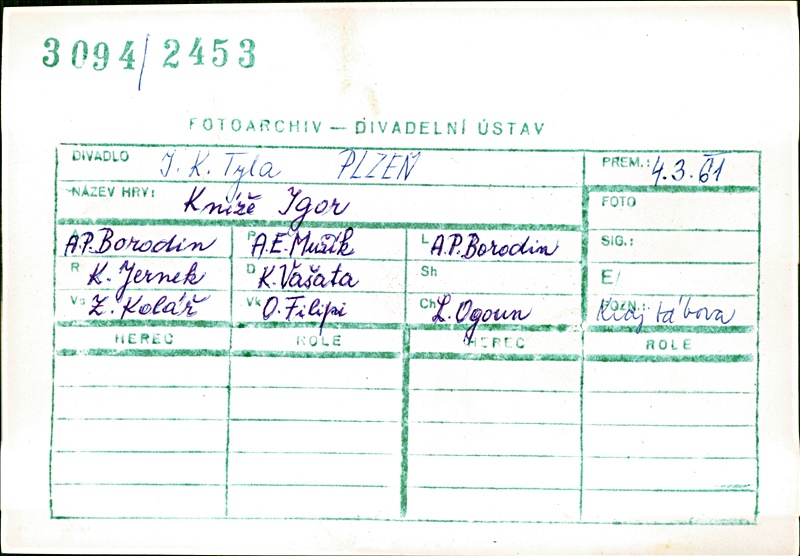 3094/2453
FOTOARCHIV — DIVADELNÍ ÚSTAV
DIVADLO J. K. Tyla PLZEŇ PREM.: 4.3.61
NÁZEV HRY: Kníže Igor FOTO
A.P. Borodin P A.E. Mužík L A.P. Borodin SIG.:
R K. Jernek D K. Vašata Sh E/
Vs Z. Kolář Vk O. Filipi Ch L. Ogoun POZN.:
HEREC ROLE HEREC ROLE